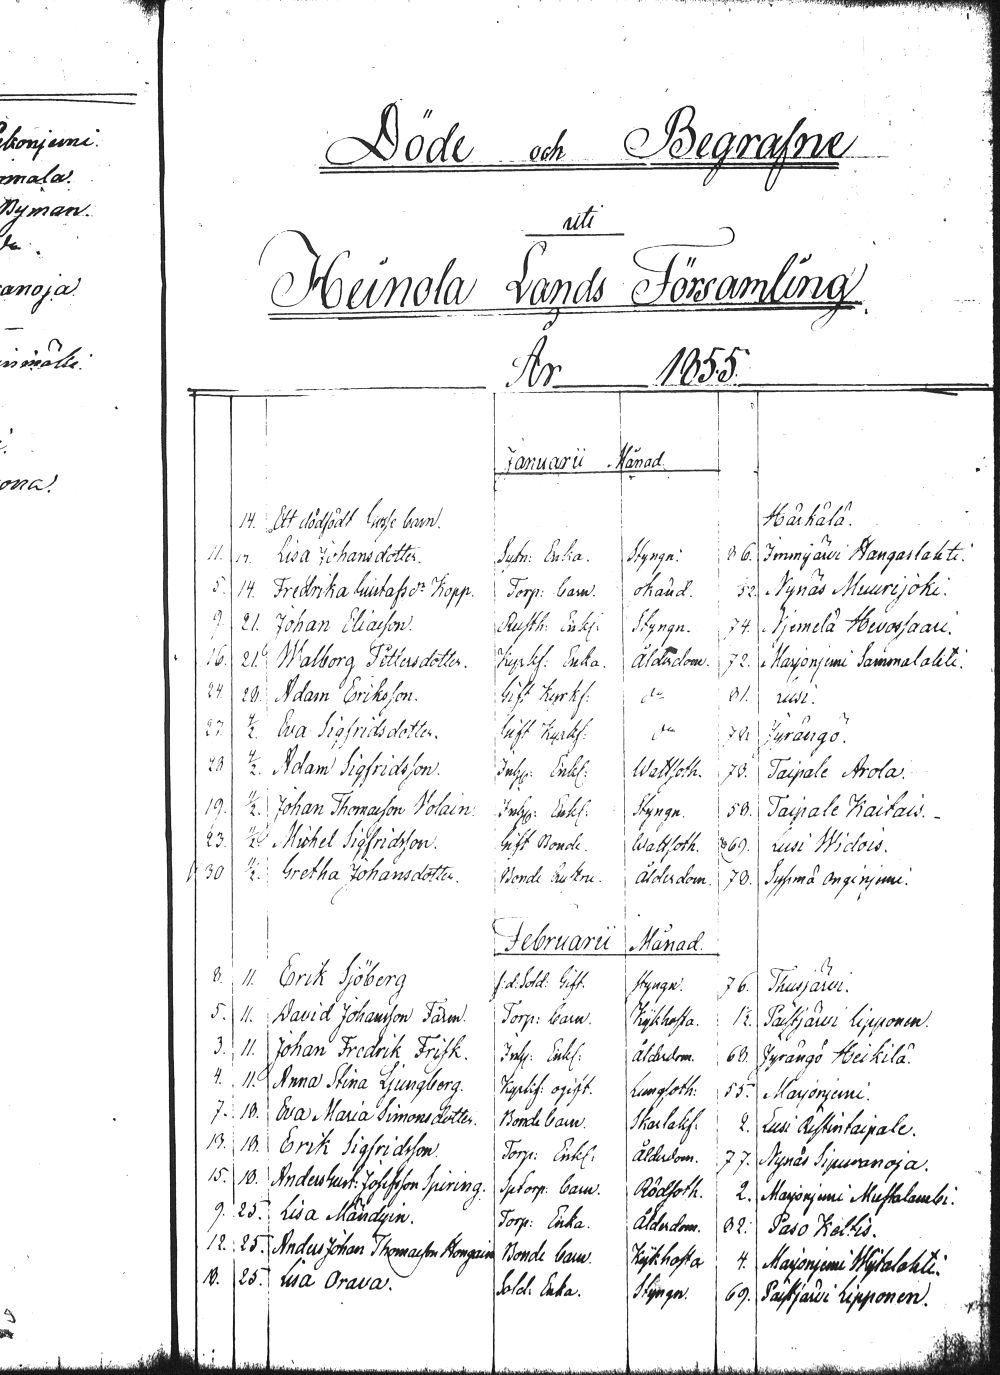 ekonjemi.
mala.
Byman.
anoja
Döde och Begrafne
uti
Heinola Lands Församling
År 1855.
Januarii Månad.
14. Ett dödfödt Gosse barn. Härkälä.
11. 17. Lisa Johansdotter. Sytn: Enka. Styngn: 86. Immjärvi Hangaslahti.
5. 14. Fredrika Gustafsdr Kopp. Torp: barn. okänd. 52. Nynäs Muurijoki.
9. 21. Johan Eliasson. Rusth: Enkl: Styngn. 74. Njemelä Hevossaari.
16. 21. Walborg Pettersdotter. Kyrkf: Enka. Ålderdom. 72. Marjonjemi Sammalahti.
24. 28. Adam Eriksson. Gift Kyrkf: do 81. Lusi.
27. 4/2. Eva Sigfridsdotter. Gift Kyrkf: do 78. Jyrängö.
28 4/2. Adam Sigfridsson. Inhys: Enkl: Wattsoth. 73. Taipale Arola.
19. 11/2. Johan Thomasson Nolain Inhys: Enkl: Styngn. 58. Taipale Kaitais.
23. 11/2. Michel Sigfridsson. Gift Bonde. Wattsoth. 69. Lusi Widois.
30 11/2. Gretha Johansdotter. Bonde Enka. Ålderdom. 78. Sysmä Onginjemi.
Februarii Månad.
8. 11. Erik Sjöberg f.d. Sold: Gift. Styngn. 76. Thusjärvi.
5. 11. David Johansson Färm. Torp: barn. Kykhosta. 1½. Paistjärvi Lipponen.
3. 11. Johan Fredrik Frisk. Inhys: Enkl: Ålderdom. 68. Jyrängö Heikilä.
4. 11. Anna Stina Ljungberg. Kyrkf: ogift. Lungsoth: 55. Marjonjemi.
7. 18. Eva Maria Simonsdotter. Bonde barn. Skarlakf: 2. Lusi Ristintaipale.
13. 18. Erik Sigfridsson Torp: Enkl: Ålderdom. 77. Nynäs Sipuranoja.
15. 18. Anders Gust: Josefsson Spiring. Sptorp: barn. Rödsoth. 2. Marjonjemi Mustalambi.
9. 25. Lisa Mändyin. Torp: Enka. Ålderdom. 82. Paso Keltis.
12. 25. Anders Johan Thomasson Hongain Bonde barn. Kykhosta 4. Marjonjemi Mytalahti.
18. 25. Lisa Orava. Sold: Enka. Styngn. 69. Paistjärvi Lipponen.